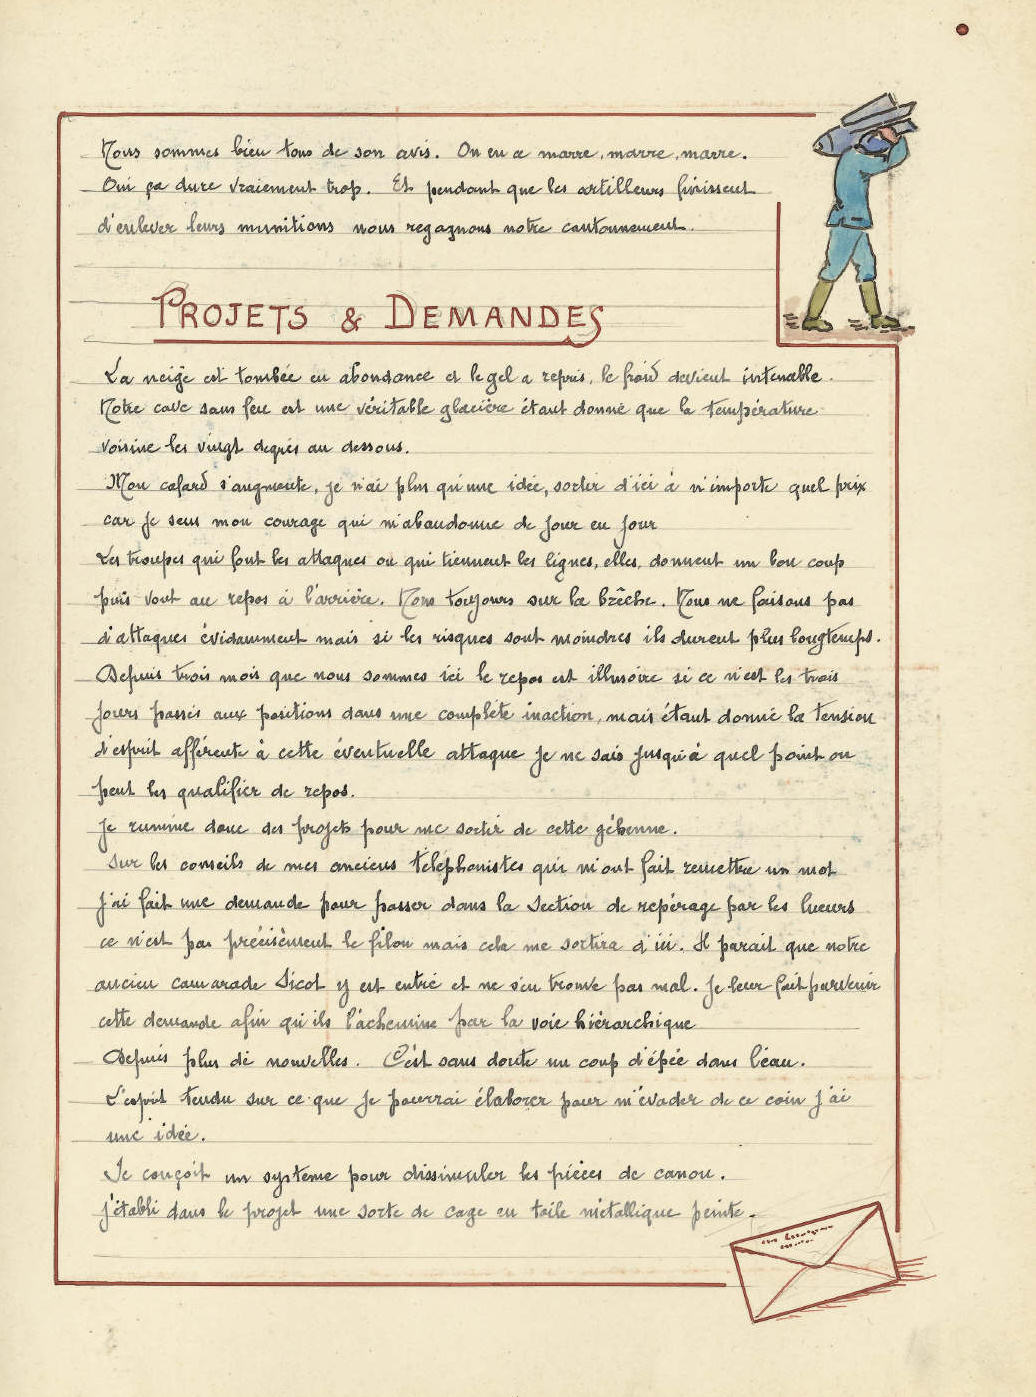 Nous sommes bien tous de son avis. On en a marre, marre, marre.
Oui ça dure vraiment trop. Et pendant que les artilleurs finissent
d'enlever leurs munitions nous regagnons notre cantonnement.
PROJETS & DEMANDES
La neige est tombée en abondance et le gel a repris, le froid devient intenable.
Notre cave sans feu est une véritable glacière étant donné que la température
voisine les vingt degrés au dessous.
Mon cafard s'augmente, je n'ai plus qu'une idée, sortir d'ici à n'importe quel prix
car je sens mon courage qui m'abandonne de jour en jour
Les troupes qui font les attaques ou qui tiennent les lignes, elles, donnent un bon coup
puis vont au repos à l'arrière. Nous toujours sur la brèche. Nous ne faisons pas
d'attaques évidamment mais si les risques sont moindres ils durent plus longtemps.
Depuis trois mois que nous sommes ici le repos est illusoire si ce n'est les trois
jours passés aux positions dans une complète inaction, mais étant donné la tension
d'esprit afférente à cette éventuelle attaque je ne sais jusqu'à quel point on
peut les qualifier de repos.
Je rumine donc des projets pour me sortir de cette géhenne.
Sur les conseils de mes anciens téléphonistes qui m'ont fait remettre un mot
j'ai fait une demande pour passer dans la Section de repérage par les lueurs
ce n'est pas précisément le filon mais cela me sortira d'ici. Il parait que notre
ancien camarade Sicot y est entré et ne s'en trouve pas mal. Je leur fait parvenir
cette demande afin qu'ils l'achemine par la voie hiérarchique
Depuis plus de nouvelles. C'est sans doute un coup d'épée dans l'eau.
L'esprit tendu sur ce que je pourrai élaborer pour m'évader de ce coin j'ai
une idée.
Je conçoit un système pour dissimuler les pièces de canon.
J'établi dans le projet une sorte de cage en toile métallique peinte.